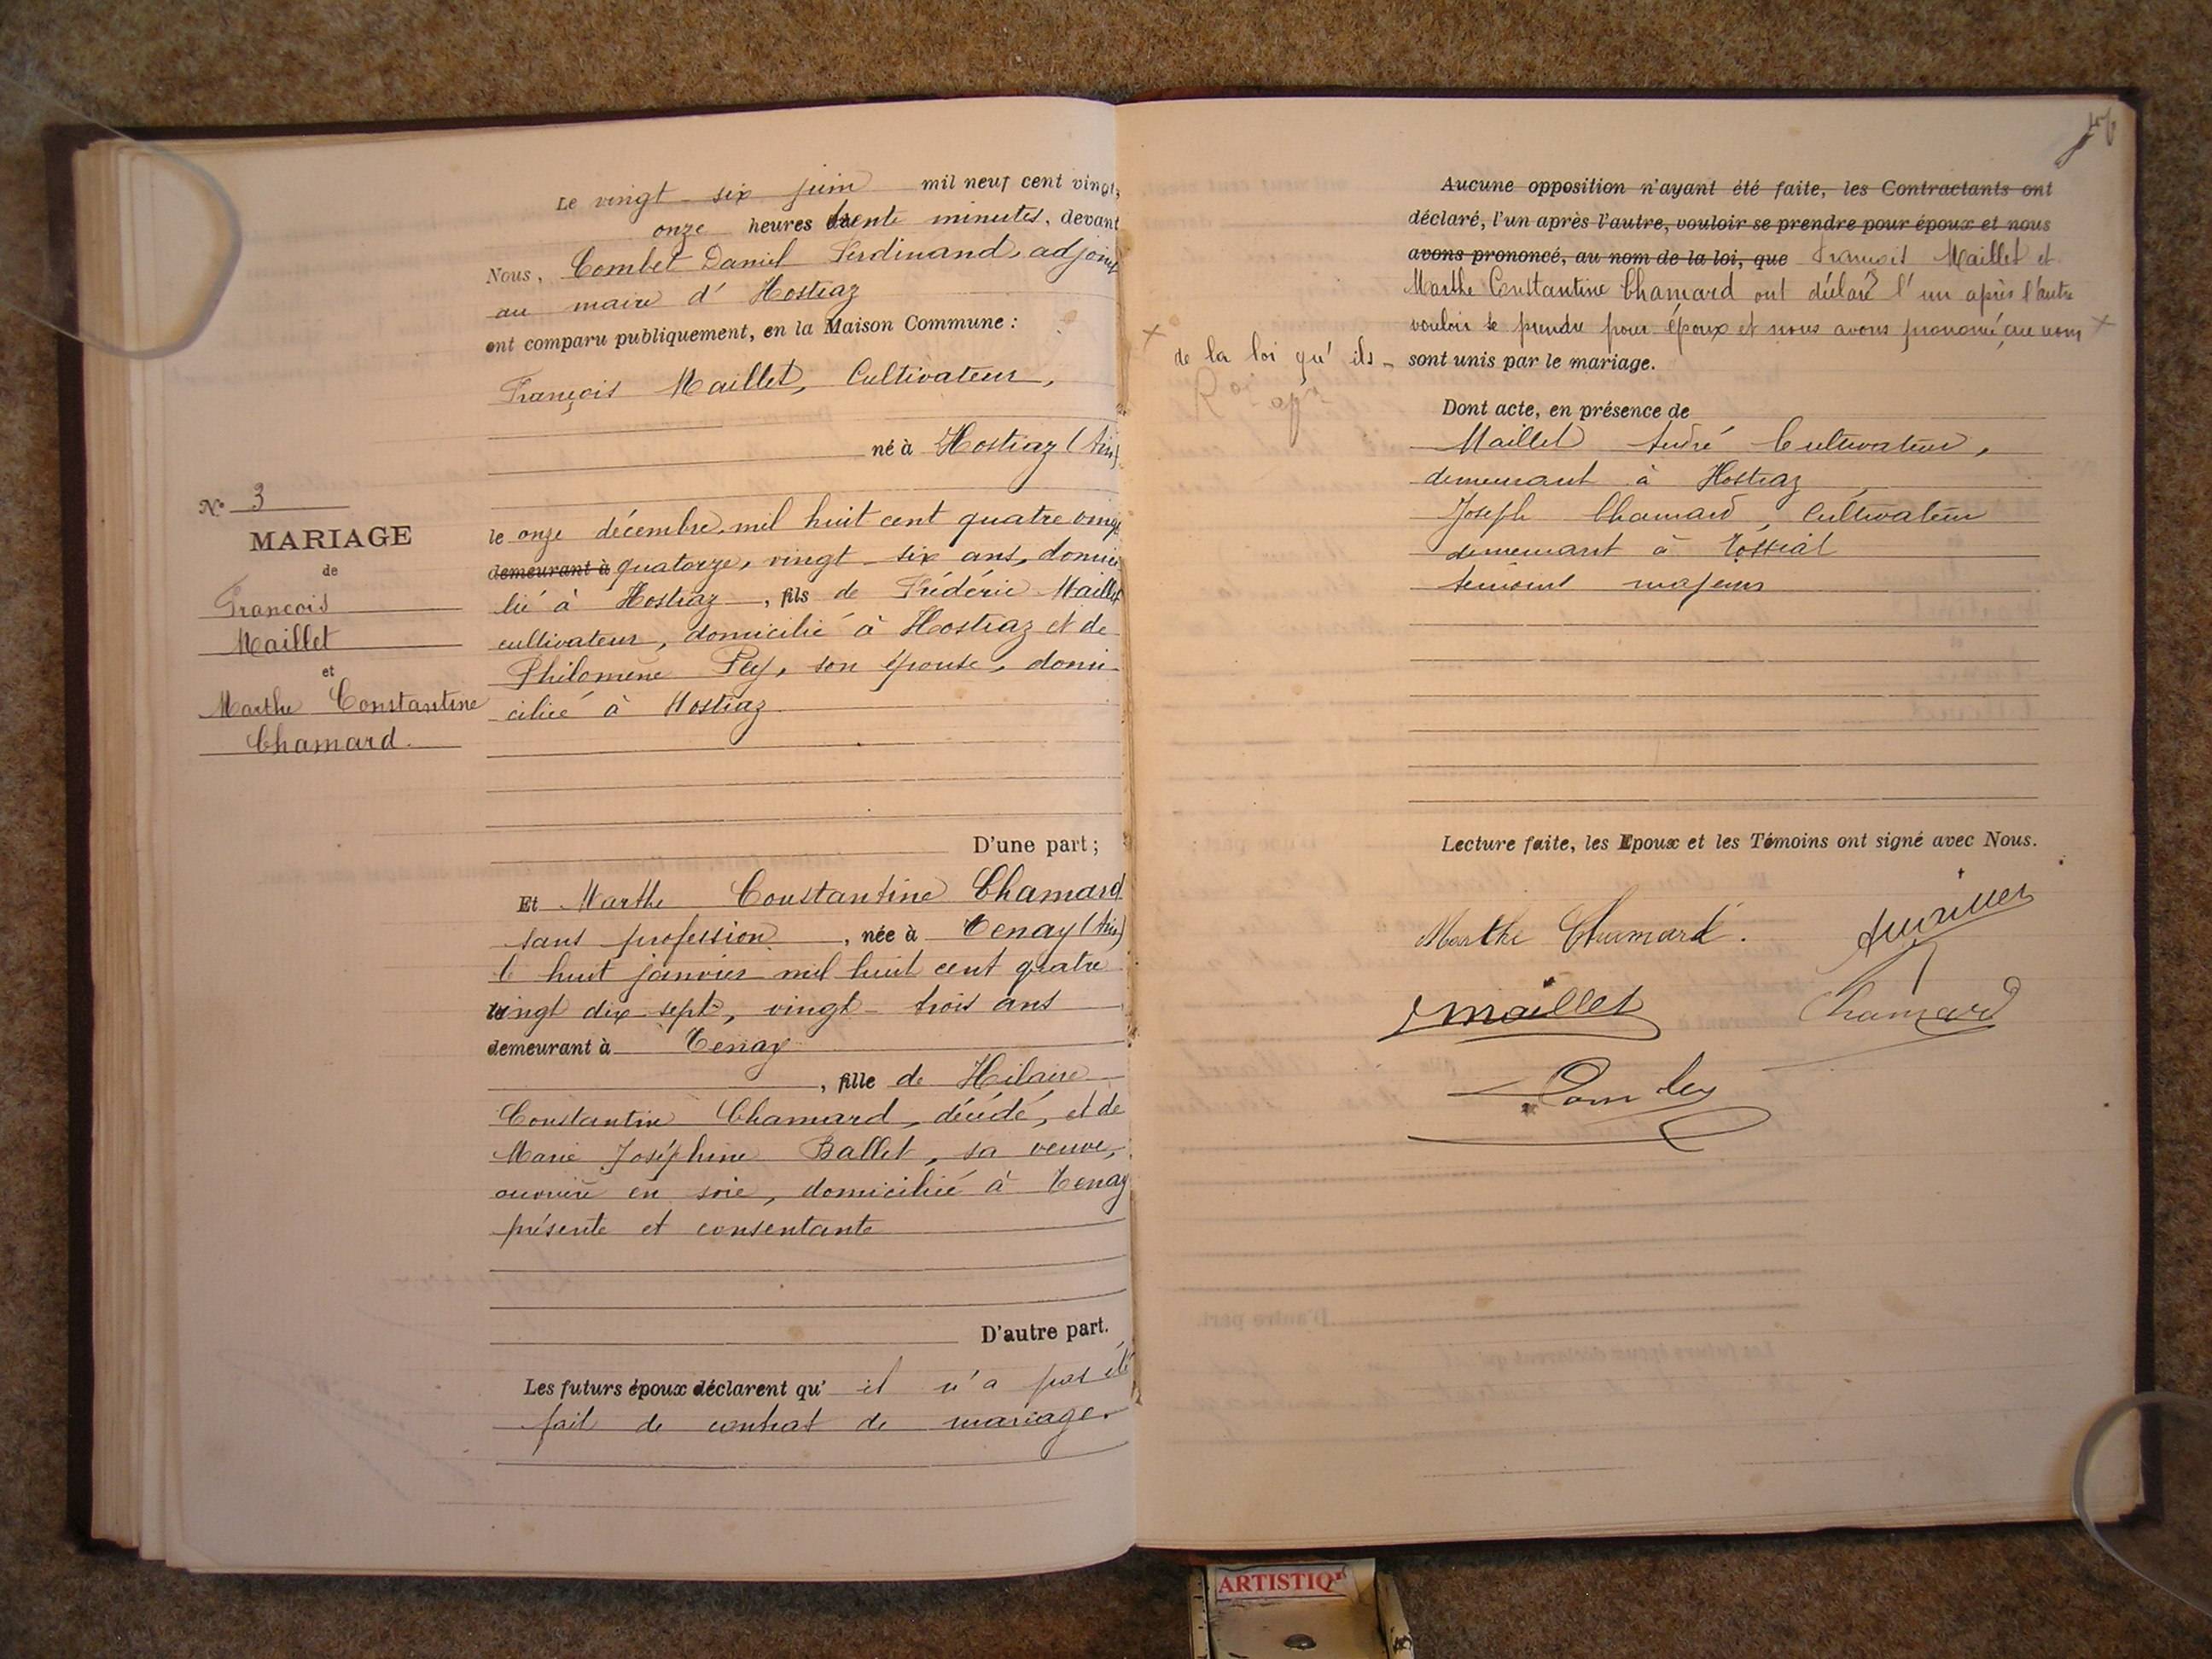 Le vingt-six juin mil neuf cent vingt,
onze heures trente minutes, devant
Nous, Combet Daniel Ferdinand, adjoint
au maire d'Hostiaz
ont comparu publiquement, en la Maison Commune :
François Maillet, Cultivateur,
né à Hostiaz (Ain)
N° 3
MARIAGE
de
François
Maillet
et
Marthe Constantine
Chamard.
le onze décembre mil huit cent quatre vingt
demeurant à quatorze, vingt-six ans, domici
lié à Hostiaz, fils de Frédéric Maillet
cultivateur, domicilié à Hostiaz et de
Philomène Pey, son épouse, domi-
ciliée à Hostiaz
D'une part ;
Et Marthe Constantine Chamard
sans profession, née à Tenay (Ain)
le huit janvier mil huit cent quatre
vingt dix sept, vingt-trois ans
demeurant à Tenay
, fille de Hilaire
Constantin Chamard, décédé, et de
Marie Joséphine Ballet, sa veuve,
ouvrière en soie, domiciliée à Tenay
présente et consentante
D'autre part.
Les futurs époux déclarent qu'il n'a pas été
fait de contrat de mariage.
Aucune opposition n'ayant été faite, les Contractants ont
déclaré, l'un après l'autre, vouloir se prendre pour époux et nous
avons prononcé, au nom de la loi, que François Maillet et
Marthe Constantine Chamard ont déclaré l'un après l'autre
vouloir se prendre pour époux et nous avons prononcé au nom ×
× de la loi qu'ils - sont unis par le mariage.
Dont acte, en présence de
Maillet André Cultivateur,
demeurant à Hostiaz
Joseph Chamard, Cultivateur
demeurant à Rossiat
témoins majeurs
Lecture faite, les Epoux et les Témoins ont signé avec Nous.
Marthe Chamard.
Maillet
Chamard
ARTISTIQ